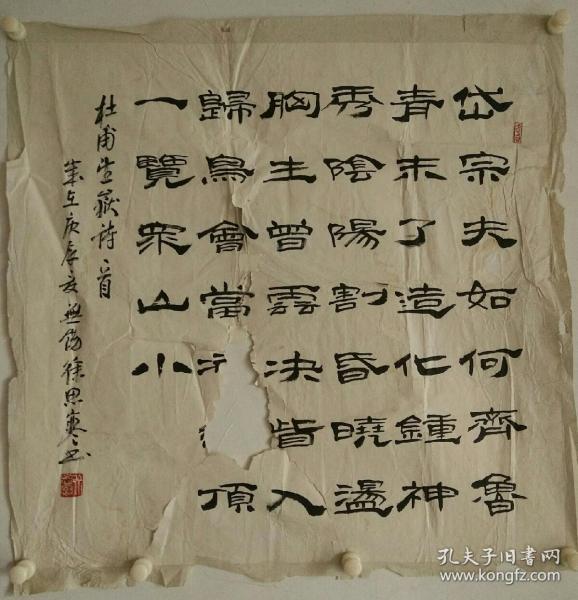 岱宗夫如何齊魯
青未了造化鍾神
秀陰陽割昏曉盪
胸生曾雲決眥入
歸鳥會當頂
一覽眾山小
杜甫望嶽詩一首
歲在庚辰夏無錫徐思寒書
孔夫子旧书网
www.kongfz.com